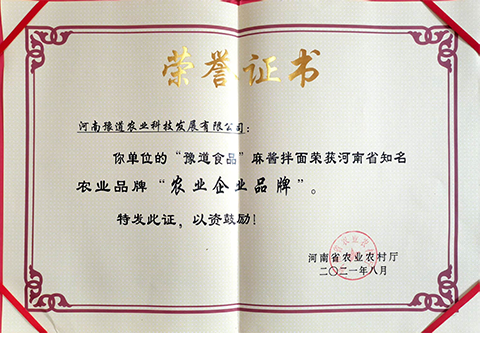 荣誉证书
河南豫道农业科技发展有限公司：
你单位的“豫道食品”麻酱拌面荣获河南省知名
农业品牌“农业企业品牌”。
特发此证，以资鼓励！
河南省农业农村厅
二〇二一年八月